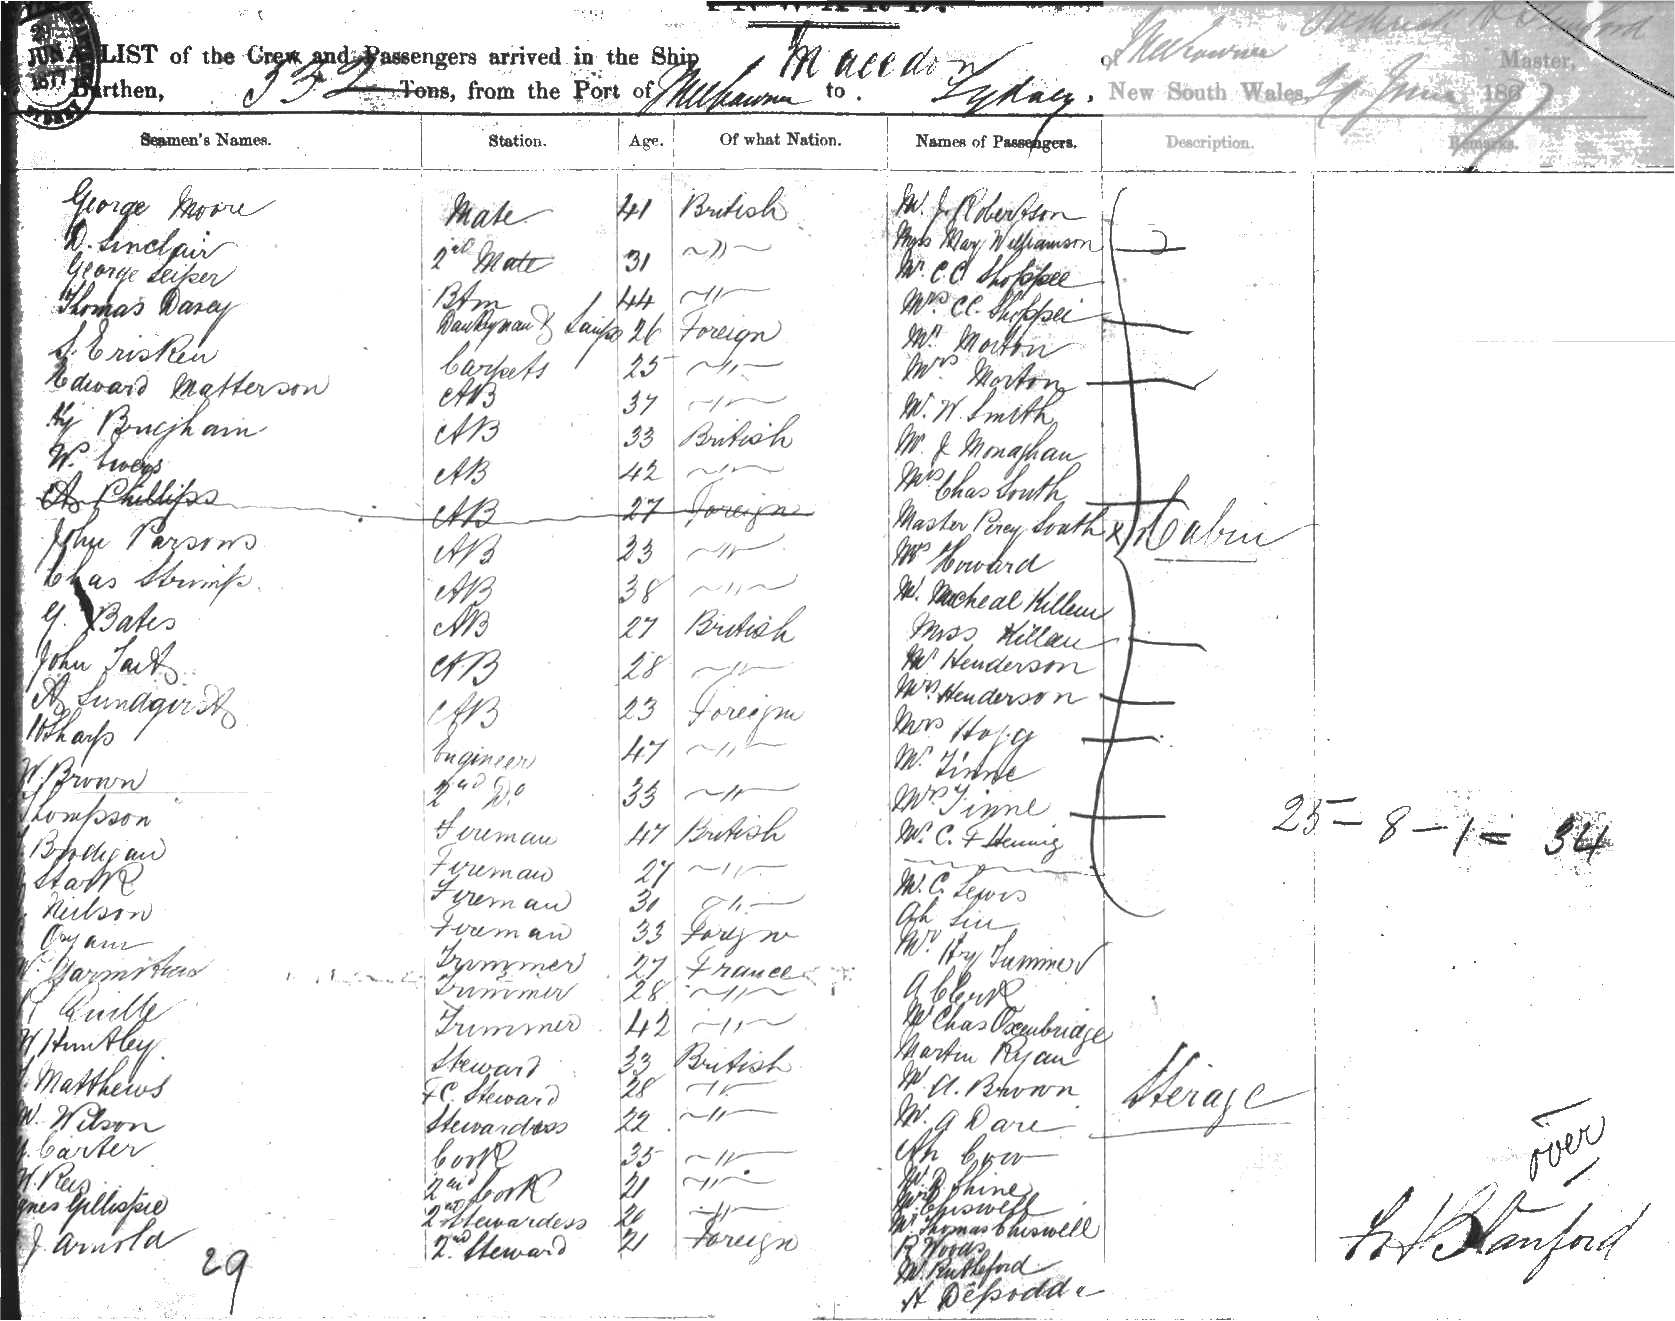 INWARD.
A LIST of the Crew and Passengers arrived in the Ship Macedon of Melbourne Frederick H Stanford Master,
Burthen, 332 Tons, from the Port of Melbourne to Sydney. New South Wales, 29 June 1867
29 JUN 1877
Seamen's Names. Station. Age. Of what Nation. Names of Passengers. Description. Remarks.
George Moore Mate 41 British Mr. J. Robertson
D. Sinclair 2nd Mate 31 ~"~ Miss May Williamson
George Leiper 44 ~"~ Mr C C Shoppee
Thomas Darcy Donkeyman & Lamps 26 Foreign Mrs C C. Shoppee
S. Erisken Carpets 25 ~"~ Mr Morton
Edward Matterson AB 37 ~"~ Mrs Morton
Hy Bingham AB 33 British Mr. W. Smith
W. AB 42 ~"~ Mr J Monaghan
A Phillips AB 27 Foreign Mrs Chas South
John Parsons AB 23 ~"~ Master Percy South Cabin
Chas Strimp AB 38 ~"~ Howard
G. Bates AB 27 British Mr. Micheal Killeen
John Tait AB 28 ~"~ Miss Killan
A Sundgirst AB 23 Foreign Mr Henderson
Sharp Engineer 47 ~"~ Mrs. Henderson
W. Brown 2nd Do 33 ~"~ Mrs Hogg
Thompson Fireman 47 British Mr Tinne
Brodigan Fireman 27 ~"~ Mrs Tinne
Stark Fireman 30 ~"~ Mr. C. F Hennig
Neilson Fireman 33 Foreign Mr. C. Lewis
Trimmer 27 France Ah Lin
W. Trimmer 28 ~"~ Mr Hy Tummer
Quille Trimmer 42 ~"~ A Clerk
W Huntley Steward 33 British Mr Chas Oxenbridge
Matthews F C. Steward 28 ~"~ Martin Ryan
W. Wilson Stewardess 22 ~"~ Mr A. Brown Sterage
Carter Cook 35 ~"~ Mr. G Dare
2nd Cook 21 ~"~ Ah Cow
Agnes Gillespie 2nd Stewardess 20 ~"~ Shine
J. Arnold 2nd Steward 21 Foreign Chiswell
Mr Thomas Chiswell
R Woods
Mr Rutleford
29
25 - 8 - 1 = 34
over
F H Stanford